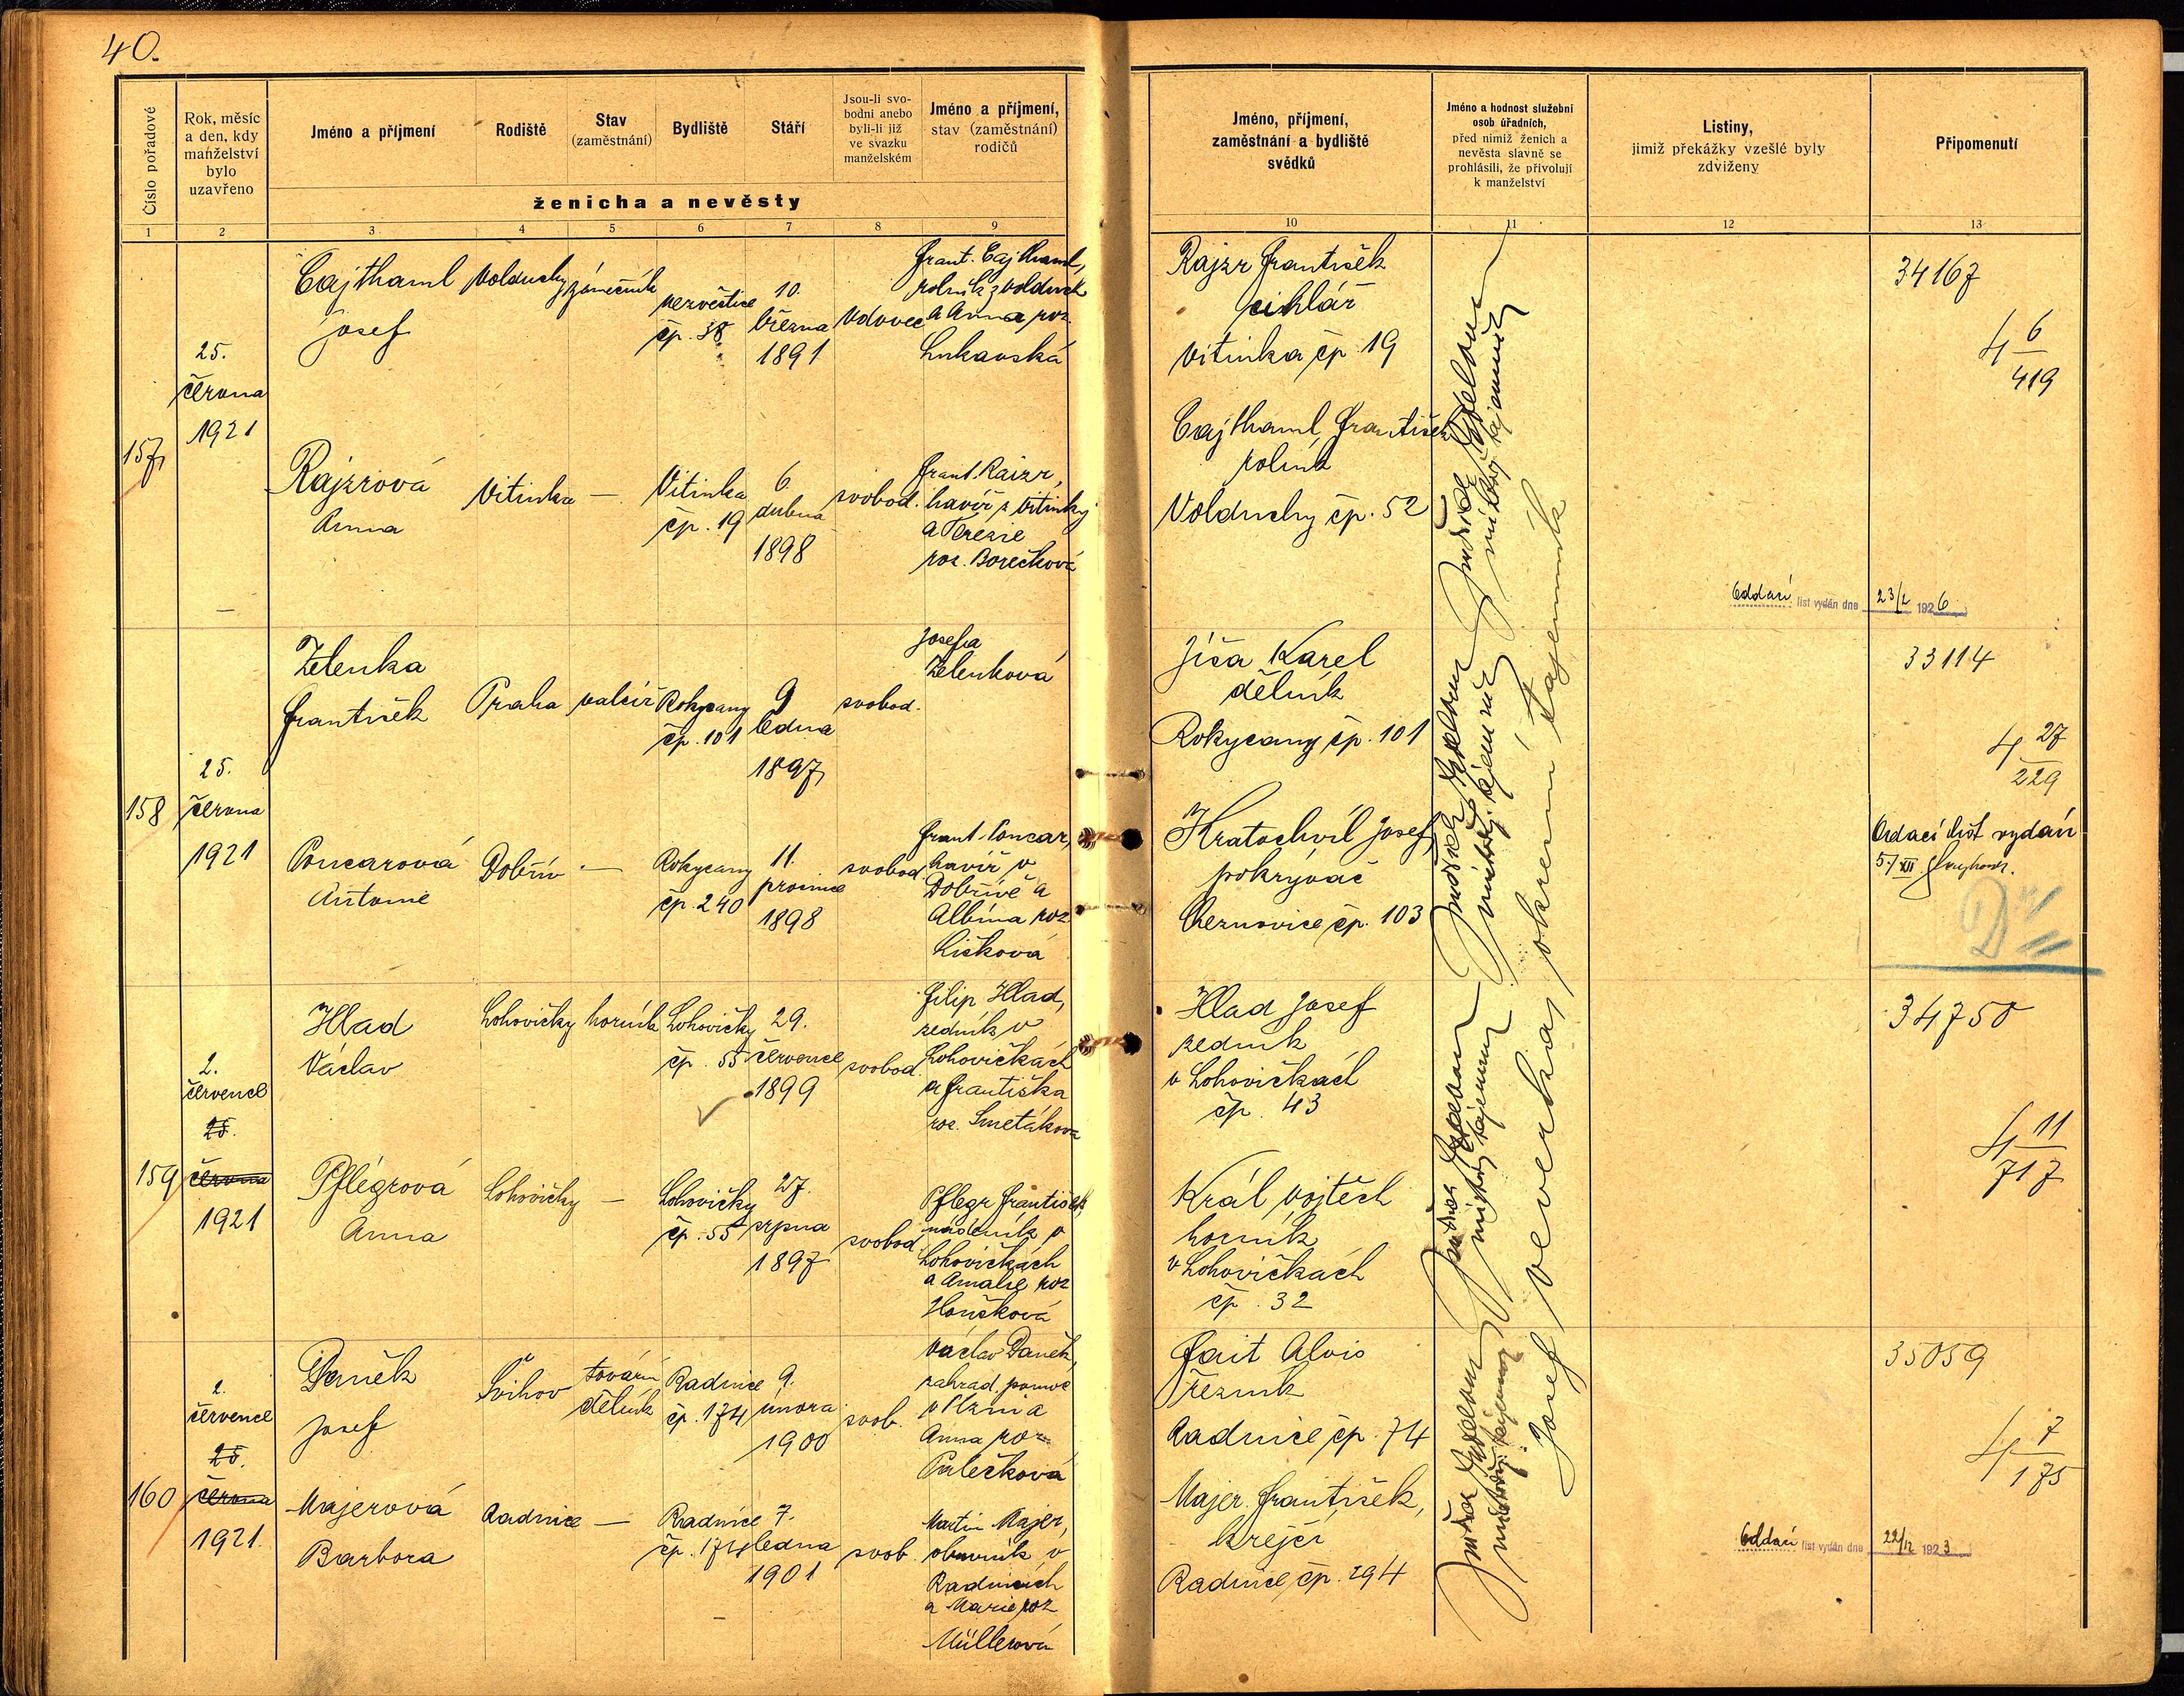 40.
Číslo pořadové
Rok, měsíc
a den, kdy
manželství
bylo
uzavřeno
Jméno a příjmení
Rodiště
Stav
(zaměstnání)
Bydliště
Stáří
Jsou-li svo-
bodni anebo
byli-li již
ve svazku
manželském
Jméno a příjmení,
stav (zaměstnání)
rodičů
ženicha a nevěsty
Jméno, příjmení,
zaměstnání a bydliště
svědků
Jméno a hodnost služební
osob úřadních,
před nimiž ženich a
nevěsta slavně se
prohlásili, že přivolují
k manželství
Listiny,
jimiž překážky vzešlé byly
zdviženy
Připomenutí
1 2 3 4 5 6 7 8 9 10 11 12 13
157
25.
června
1921
Cajthaml
Josef
Volduchy
zámečník
Nezvěstice
čp. 38
10.
března
1891
Vdovec
Frant. Cajthaml,
rolník z Volduch
a Anna roz.
Lukavská
Rajzrová
Anna
Vitinka
—
Vitinka
čp. 19
6.
dubna
1898
svobod.
Frant. Raizr,
havíř z Vitinky
a Terezie
roz. Borečková
Rajzr František
cihlář
Vitinka čp. 19
Cajthaml František
rolník
Volduchy čp. 52
34167
4 6
419
Oddací list vydán dne 23/2 1926
158
25.
června
1921
Zelenka
František
Praha
valcíř
Rokycany
čp. 101
9
ledna
1897
svobod.
Josefa
Zelenková
Poncarová
Antonie
Dobřív
—
Rokycany
čp. 240
11.
prosince
1898
svobod.
Frant. Poncar,
havíř v
Dobřívě a
Albína roz.
Lišková
Jíša Karel
dělník
Rokycany čp. 101
Kratochvíl Josef,
pokrývač
Cheznovice čp. 103
33114
4 27
229
Oddací list vydán
159
2.
července
25.
června
1921
Hlad
Václav
Lohovičky
horník
Lohovičky
čp. 55
29.
července
1899
svobod.
Filip Hlad,
zedník v
Lohovičkách
a Františka
roz. Smetáková
Pflégrová
Anna
Lohovičky
—
Lohovičky
čp. 55
27.
srpna
1897
svobod.
Pflegr František,
nádeník v
Lohovičkách
a Amalie roz
Honšková
Hlad Josef
zedník
v Lohovičkách
čp. 43
Král Vojtěch
horník
v Lohovičkách
čp. 32
34750
4 11
717
160
2.
července
25.
června
1921.
Daněk
Josef
Švihov
tovární
dělník
Radnice
čp. 174
9.
února
1900
svob.
Václav Daněk,
zahrad. pomoc
v Plzni a
Anna roz
Palečková
Majerová
Barbora
Radnice
—
Radnice
čp. 174
7.
ledna
1901
svob.
Martin Majer,
obuvník v
Radnicích
a Marie roz
Müllerová
Fait Alois
řezník
Radnice čp. 74
Majer František,
krejčí
Radnice čp. 294
Josef Veverka, okresní tajemník
35059
4 7
175
Oddací list vydán dne 22/12 1923